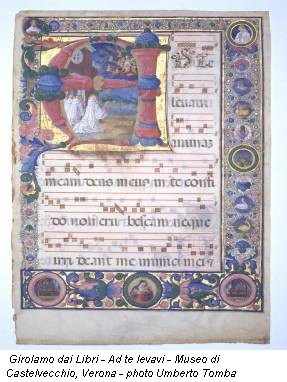 A d te
levavi
animaz
meam deus meus in te confi
do non erubescam neque
irrideant me inimici mei
Girolamo dai Libri - Ad te levavi - Museo di
Castelvecchio, Verona - photo Umberto Tomba